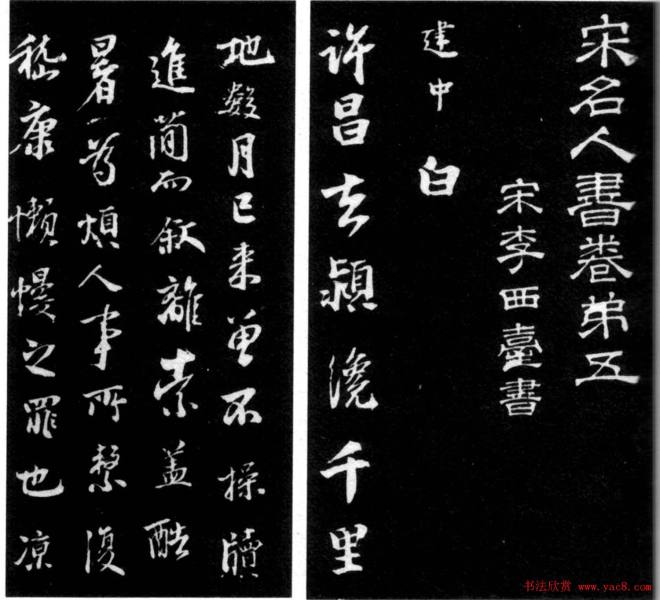 宋名人書卷第五
宋李西臺書
建中
白
許昌去潁瀍千里
地數月已来曾不操牘
進簡而叙離索蓋酷
暑為煩人事所繫復
嵇康懶慢之罪也凉
书法欣赏 www.yac8.com